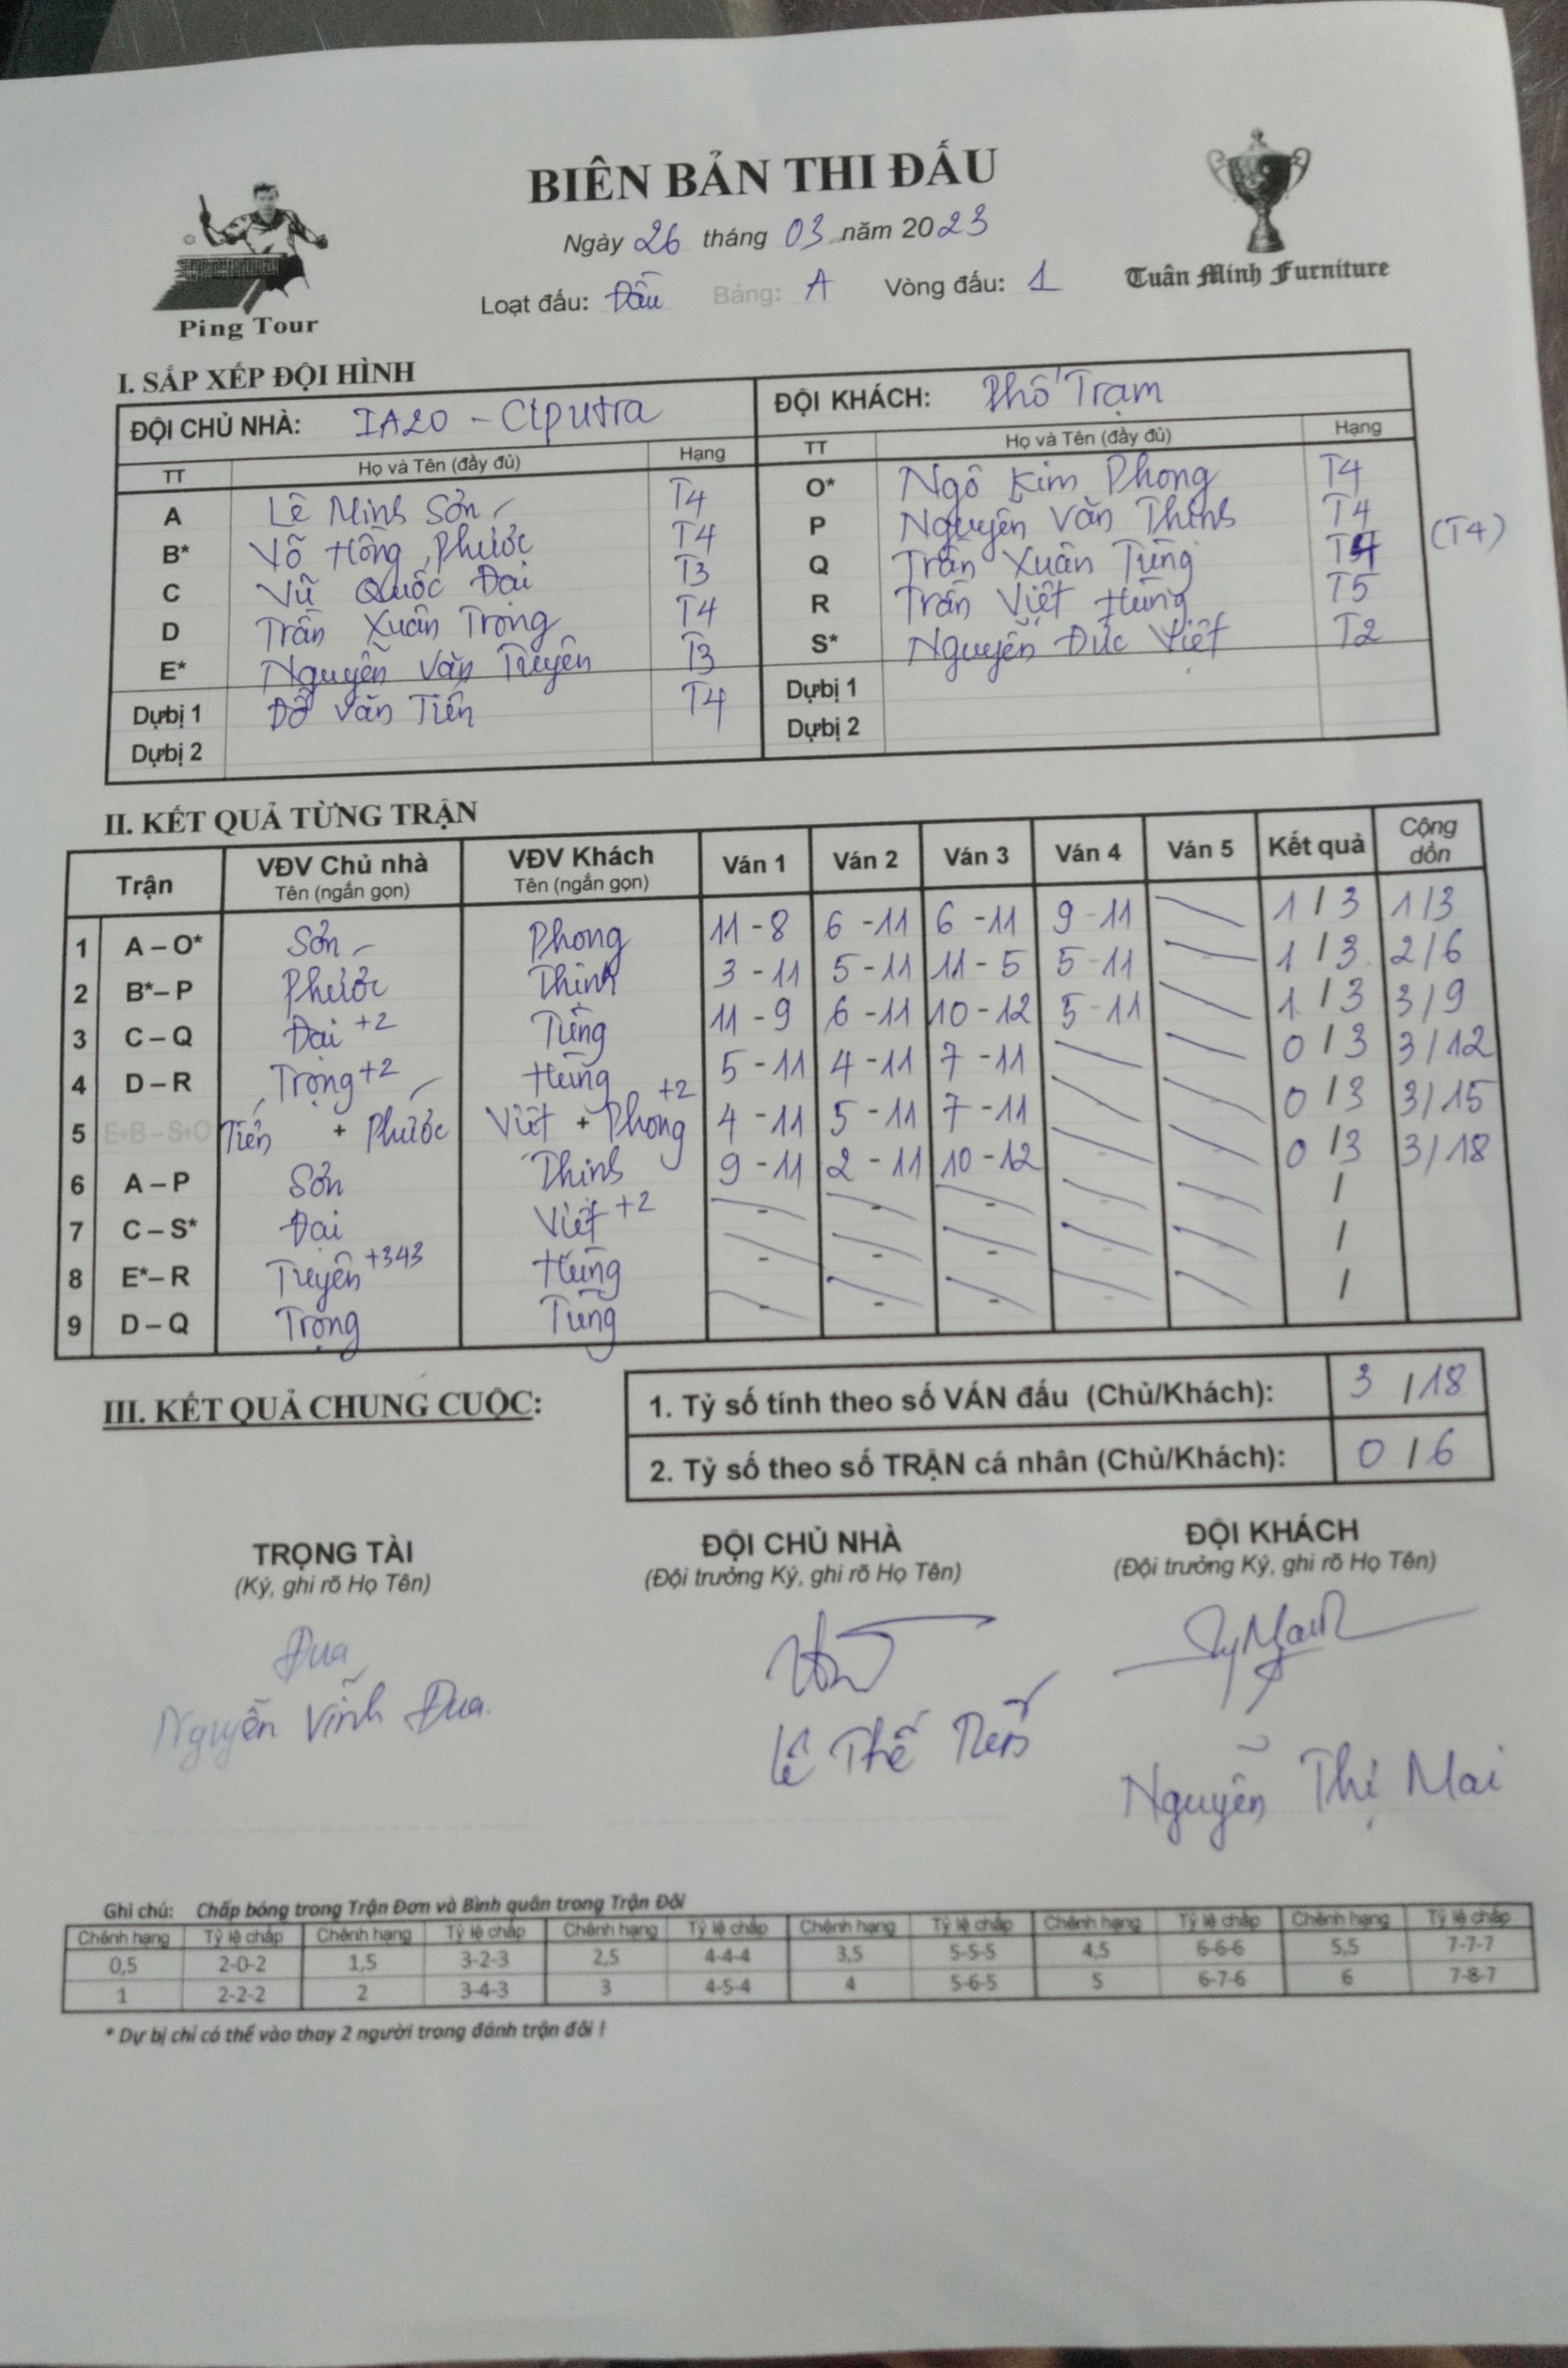 BIÊN BẢN THI ĐẤU
Ngày 26 tháng 03 năm 2023
Loạt đấu: Đấu Bảng: A Vòng đấu: 1
Ping Tour
Tuân Minh Furniture
I. SẮP XẾP ĐỘI HÌNH
ĐỘI CHỦ NHÀ: IA20 - Ciputra ĐỘI KHÁCH: Phố Trạm
TT Họ và Tên (đầy đủ) Hạng TT Họ và Tên (đầy đủ) Hạng
A Lê Minh Sơn T4 O* Ngô Kim Phong T4
B* Võ Hồng Phước T4 P Nguyễn Văn Thịnh T4
C Vũ Quốc Đại T3 Q Trần Xuân Tùng T4 (T4)
D Trần Xuân Trọng T4 R Trần Việt Hùng T5
E* Nguyễn Văn Truyên T3 S* Nguyễn Đức Việt T2
Dựbị 1 Đỗ Văn Tiến T4 Dựbị 1
Dựbị 2 Dựbị 2
II. KẾT QUẢ TỪNG TRẬN
Trận VĐV Chủ nhà Tên (ngắn gọn) VĐV Khách Tên (ngắn gọn) Ván 1 Ván 2 Ván 3 Ván 4 Ván 5 Kết quả Cộng dồn
1 A – O* Sơn Phong 11 - 8 6 - 11 6 - 11 9 - 11 1 / 3 1/3
2 B*– P Phước Thịnh 3 - 11 5 - 11 11 - 5 5 - 11 1 / 3 2/6
3 C – Q Đại +2 Tùng 11 - 9 6 - 11 10 - 12 5 - 11 1 / 3 3/9
4 D – R Trọng +2 Hùng 5 - 11 4 - 11 7 - 11 0 / 3 3/12
5 E+B – S+O Tiến + Phước Việt + Phong +2 4 - 11 5 - 11 7 - 11 0 / 3 3/15
6 A – P Sơn Thịnh 9 - 11 2 - 11 10 - 12 0 / 3 3/18
7 C – S* Đại Việt +2 - - - - /
8 E*– R Truyên +343 Hùng - - - - /
9 D – Q Trọng Tùng - - - - /
III. KẾT QUẢ CHUNG CUỘC:
1. Tỷ số tính theo số VÁN đấu (Chủ/Khách): 3 / 18
2. Tỷ số theo số TRẬN cá nhân (Chủ/Khách): 0 / 6
TRỌNG TÀI ĐỘI CHỦ NHÀ ĐỘI KHÁCH
(Ký, ghi rõ Họ Tên) (Đội trưởng Ký, ghi rõ Họ Tên) (Đội trưởng Ký, ghi rõ Họ Tên)
Đua
Nguyễn Vĩnh Đua Lê Thế Nguyễn Thị Mai
Ghi chú: Chấp bóng trong Trận Đơn và Bình quân trong Trận Đôi
Chênh hạng Tỷ lệ chấp Chênh hạng Tỷ lệ chấp Chênh hạng Tỷ lệ chấp Chênh hạng Tỷ lệ chấp Chênh hạng Tỷ lệ chấp Chênh hạng Tỷ lệ chấp
0,5 2-0-2 1,5 3-2-3 2,5 4-4-4 3,5 5-5-5 4,5 6-6-6 5,5 7-7-7
1 2-2-2 2 3-4-3 3 4-5-4 4 5-6-5 5 6-7-6 6 7-8-7
* Dự bị chỉ có thể vào thay 2 người trong đánh trận đôi !